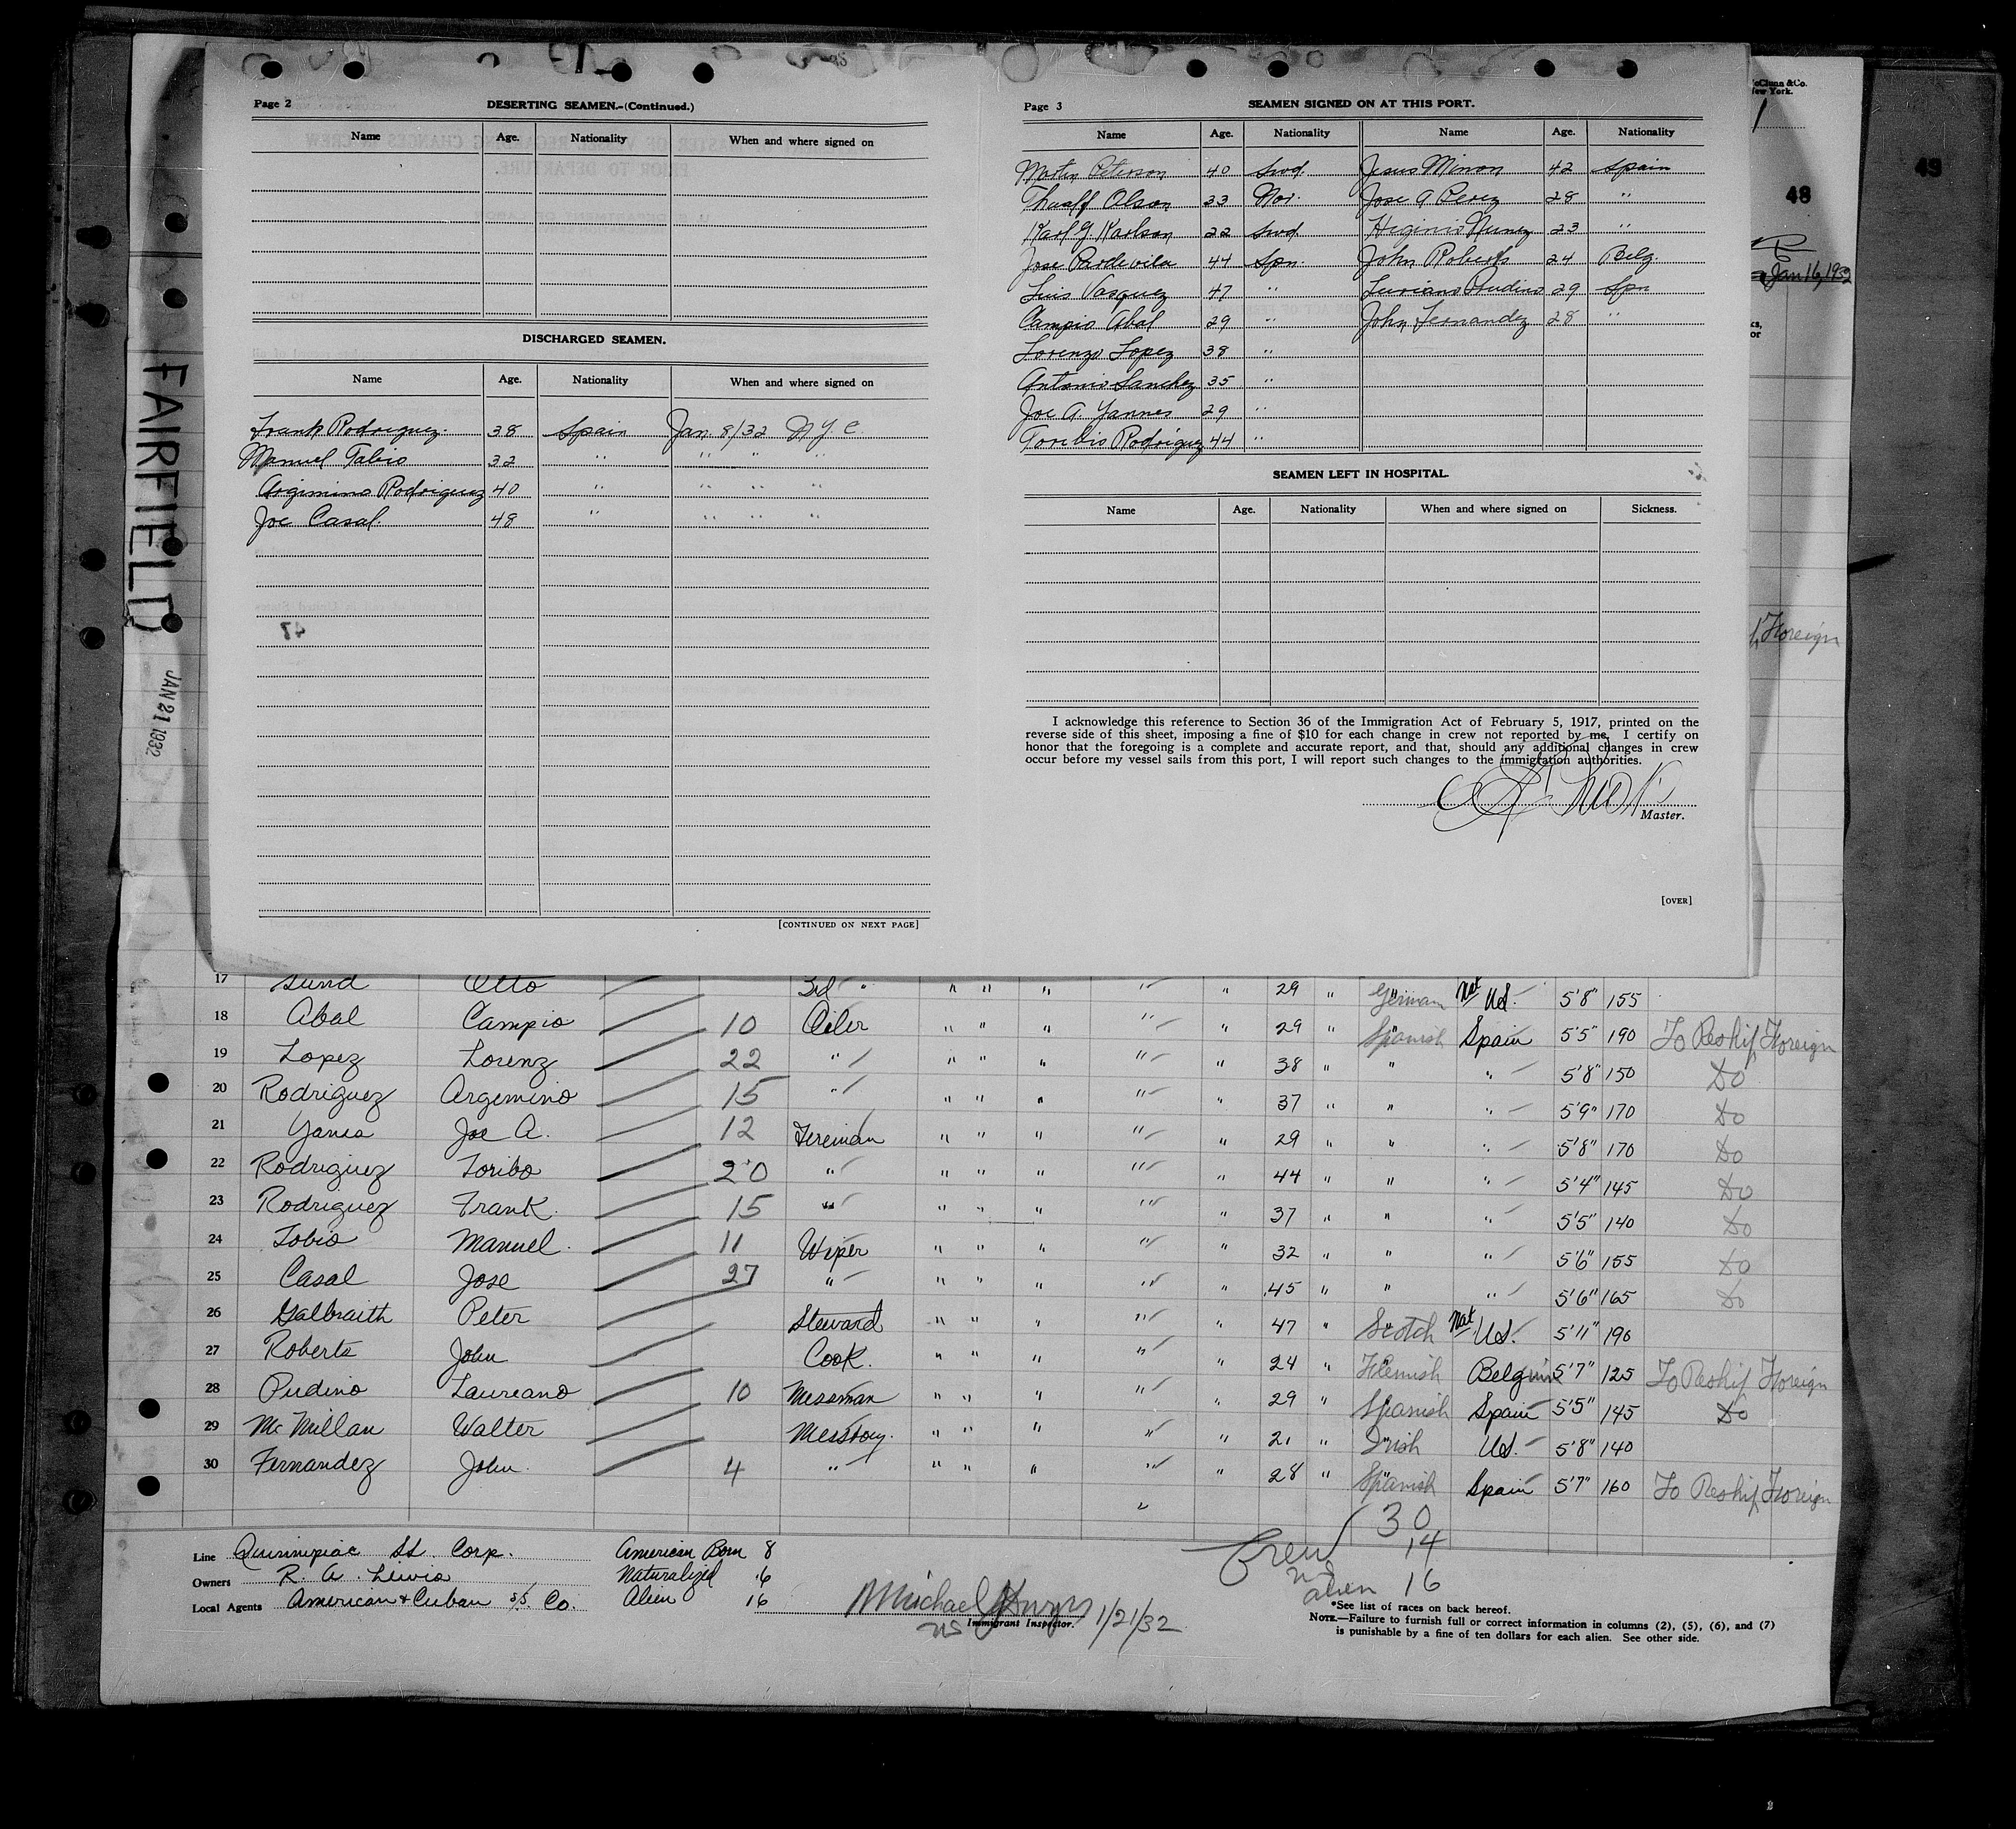 Page 2 DESERTING SEAMEN.-(Continued.)
Name Age. Nationality When and where signed on
DISCHARGED SEAMEN.
Name Age. Nationality When and where signed on
Frank Rodriguez. 38 Spain Jan 8/32 N.Y.C.
Manuel Tabio 32 " " " "
Argimino Rodriguez 40 " " " "
Joe Casal. 48 " " " "
47
[CONTINUED ON NEXT PAGE]
Page 3 SEAMEN SIGNED ON AT THIS PORT.
Name Age. Nationality Name Age. Nationality
Martin Peterson 40 Swd. Jesus Minon 42 Spain
Olson 33 Nor. Jose A Perez 28 "
Karl G. Karlson 22 Swd Higinio Nunez 23 "
Jose Pardevila 44 Spn. John Roberts 24 Belg.
Luis Vasquez 47 " Pudino 29 Spn
Campio Abal 29 " John Fernandez 28 "
Lorenzo Lopez 38 "
Antonio Sanchez 35 "
Joe A. Yannes 29 "
Toribio Rodriguez 44 "
SEAMEN LEFT IN HOSPITAL.
Name Age. Nationality When and where signed on Sickness.
I acknowledge this reference to Section 36 of the Immigration Act of February 5, 1917, printed on the
reverse side of this sheet, imposing a fine of $10 for each change in crew not reported by me. I certify on
honor that the foregoing is a complete and accurate report, and that, should any additional changes in crew
occur before my vessel sails from this port, I will report such changes to the immigration authorities.
Master.
[OVER]
FAIRFIELD
JAN 21 1932
& Co.
New York.
48
49
Jan 16, 1932
Foreign
17 Sund Otto 3rd " " " " " " 29 " German Nat US. 5'8" 155
18 Abal Campio 10 Oiler " " " " " 29 " Spanish Spain 5'5" 190 To Reship Foreign
19 Lopez Lorenz 22 " " " " " " 38 " " " 5'8" 150 Do
20 Rodriguez Argemino 15 " " " " " " 37 " " " 5'9" 170 Do
21 Yanes Joe A. 12 Fireman " " " " " 29 " " " 5'8" 170 Do
22 Rodriguez Toribo 20 " " " " " " 44 " " " 5'4" 145 Do
23 Rodriguez Frank 15 " " " " " " 37 " " " 5'5" 140 Do
24 Tobio Manuel. 11 Wiper " " " " " 32 " " " 5'6" 155 Do
25 Casal Jose 27 " " " " " " 45 " " " 5'6" 165 Do
26 Galbraith Peter Steward " " " " " 47 " Scotch Nat US. 5'11" 190
27 Roberts John Cook. " " " " " 24 " Flemish Belgium 5'7" 125 To Reship Foreign
28 Pudino Laureano 10 Messman " " " " " 29 " Spanish Spain 5'5" 145 Do
29 McMillan Walter Messboy. " " " " " 21 " Irish US. 5'8" 140
30 Fernandez John 4 " " " " " " 28 " Spanish Spain 5'7" 160 To Reship Foreign
Line Quinnipiac SS. Corp. American Born 8
Owners R. A. Lewis Naturalized 6
Local Agents American & Cuban S/S. Co. Alien 16
Michael 1/21/32
Immigrant Inspector.
Crew 30
14
alien 16
*See list of races on back hereof.
NOTE.—Failure to furnish full or correct information in columns (2), (5), (6), and (7)
is punishable by a fine of ten dollars for each alien. See other side.